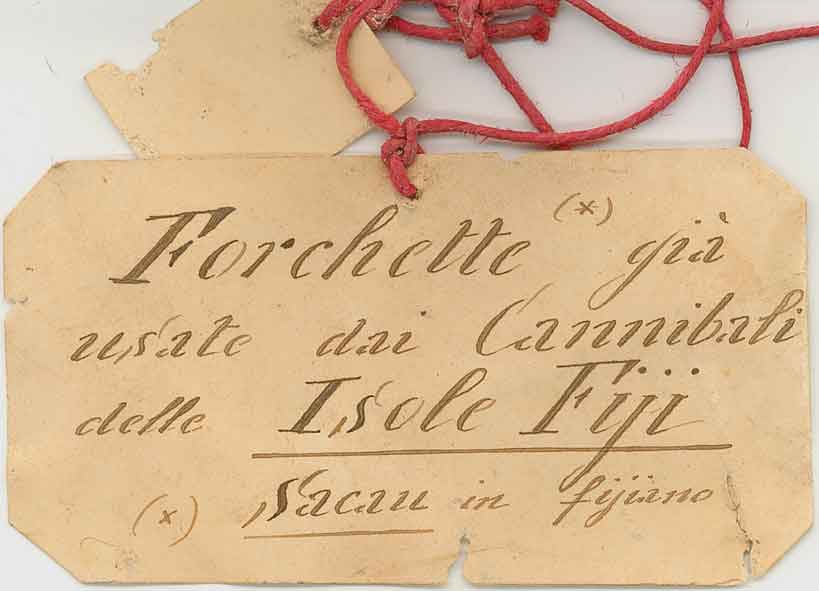 Forchette (x) già
usate dai Cannibali
delle Isole Fiji
(x) Sacau in fijiano